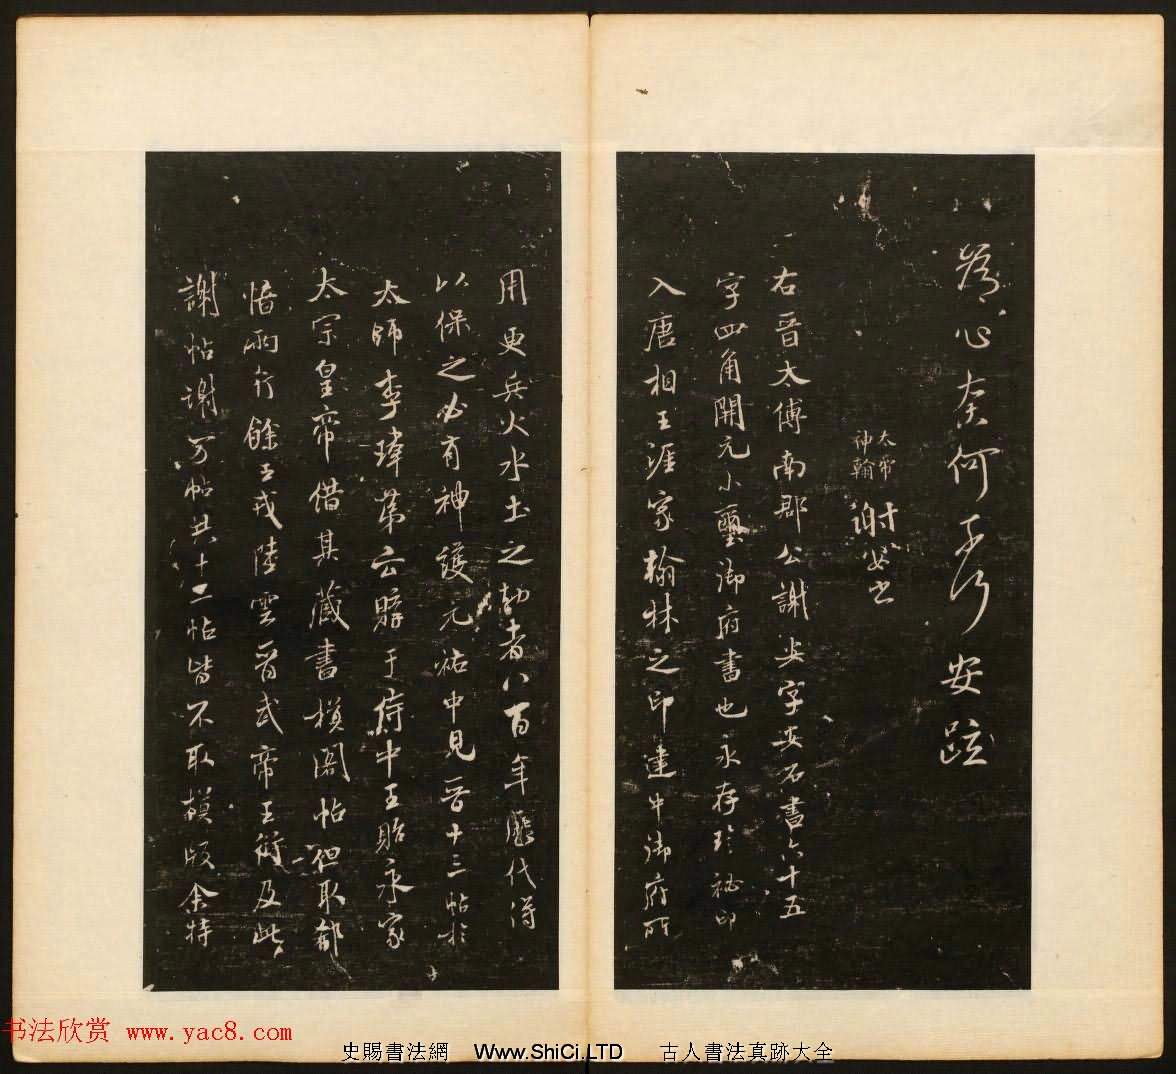 爲心奈何奈何安疏
太常
神翰
謝安書
右晉太傅南郡公謝安字安石書六十五
字四角開元小璽御府書也永存珍祕印
入唐相王涯家翰林之印建中御府所
用更兵火水土之劫者八百年歷代得
以保之必有神護元祐中見晉十三帖於
太師李瑋第云購于侍中王貽永家
太宗皇帝借其藏書模閣帖但取郗
愔兩行餘王戎陸雲晉武帝王衍及此
謝帖謝万帖共十二帖皆不取模版余特
书法欣赏 www.yac8.com
史賜書法網 Www.ShiCi.LTD 古人書法真跡大全